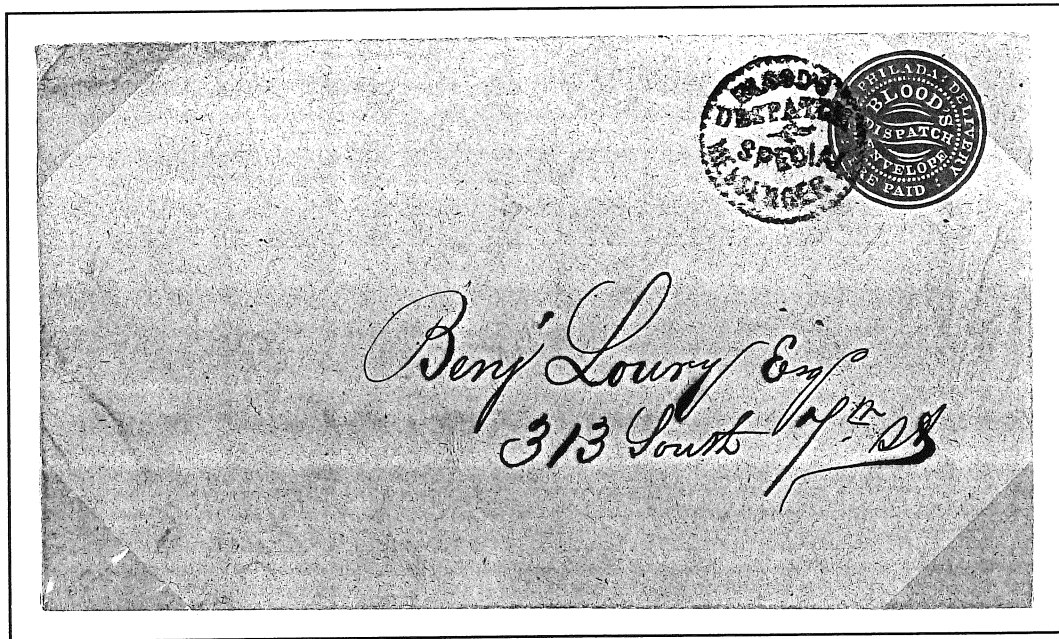 BLOOD'S
DESPATCH
SPECIAL
MESSENGER
PHILADA. DELIVERY
BLOODS
DISPATCH
ENVELOPE
PRE PAID
Benjⁿ Loury Esq
313 South 7th St